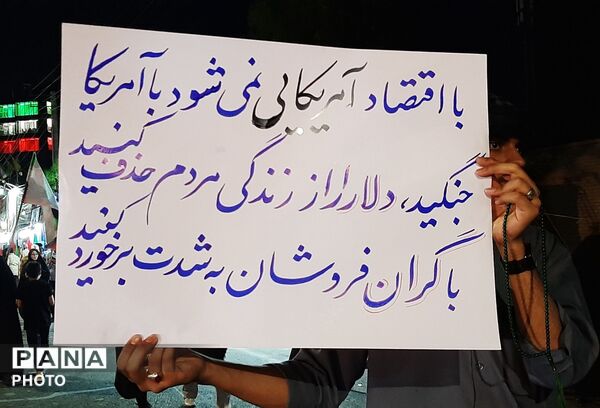 با اقتصاد آمریکایی نمی شود با آمریکا
جنگید، دلار را از زندگی مردم حذف کنید
با گران فروشان به شدت برخورد کنید
PANA
PHOTO